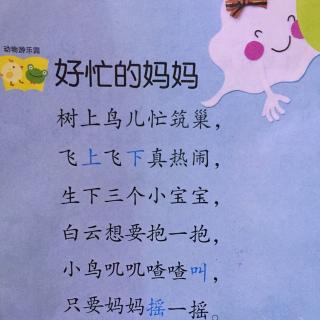 动物游乐园
好忙的妈妈
树上鸟儿忙筑巢，
飞上飞下真热闹，
生下三个小宝宝，
白云想要抱一抱，
小鸟叽叽喳喳叫，
只要妈妈摇一摇。